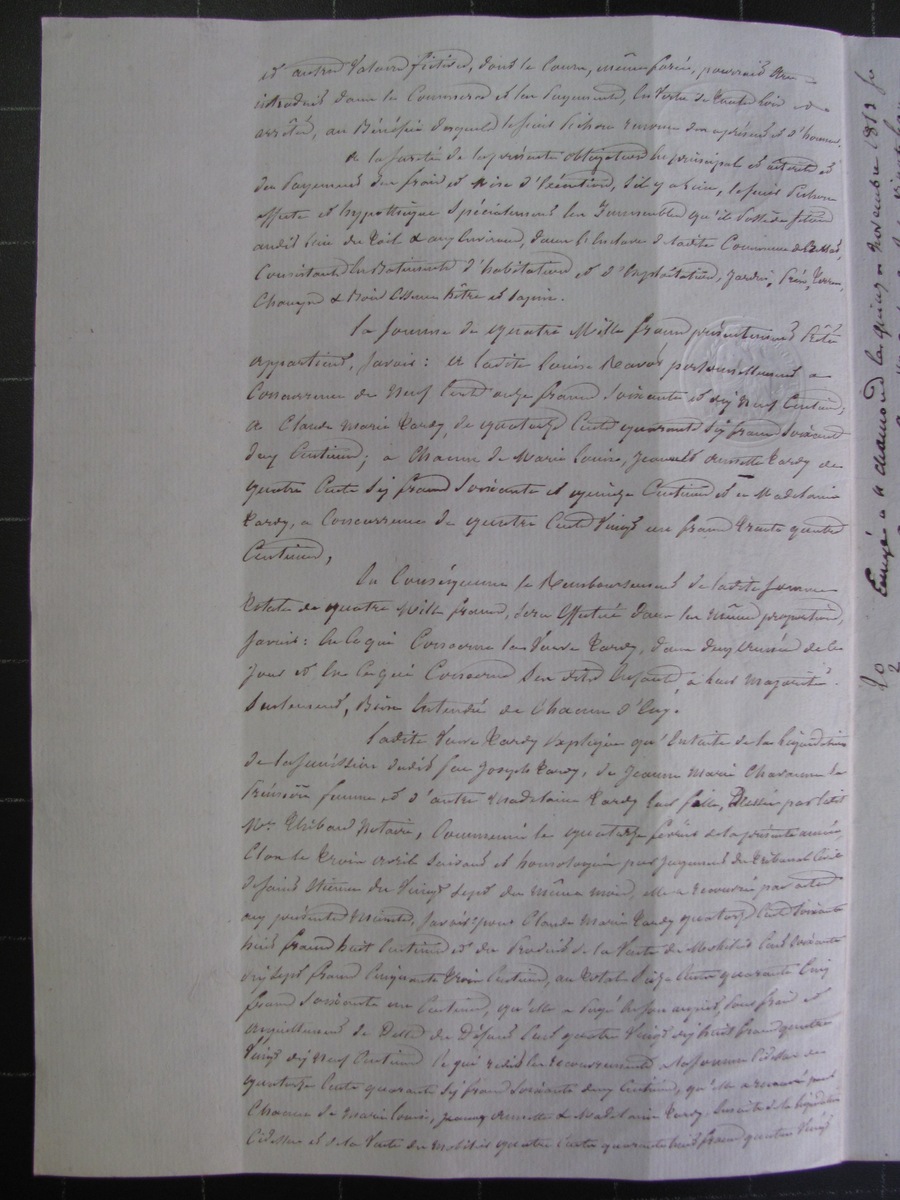 et autres valeurs fictives, dont le Cours, même forcé, pourrait être
introduit dans le Commerce et les Payements, en Vertu de toute loi et
arrêté, au Bénéfice desquels ledit Pichon renonce dès à présent et d'honneur.
A la sureté de la présente obligation en principal et intérêts et
du Payement des frais et mise d'Exécution, s'il y a lieu, ledit Pichon
affecte et hypothèque Spécialement les Immeubles qu'il Possède
audit lieu du & aux Environs, dans l'Enclave de ladite Commune
Consistant en Batiments d'habitation et d'Exploitation, Jardin, Prés, Terres,
Champs & Bois Essence hêtre et sapin.
La Somme de quatre Mille francs présentement Prêtée
appartient, savoir : à ladite Louise Ravat personnellement a
Concurrence de Neuf Cent onze francs soixante et dix Neuf Centimes ;
a Claude Marie Tardy, de quatorze Cents quarante six francs soixante
deux Centimes ; a Chacune de Marie Louise, Jeannette Tardy de
quatre Cents dix francs soixante et quinze Centimes et a Madelaine
Tardy, a Concurrence de quatre Cents Vingt un francs trente quatre
Centimes,
En Conséquence le Remboursement de ladite somme
totale de quatre Mille francs, sera Effectué dans les mêmes proportions,
savoir : En ce qui Concerne la Veuve Tardy, dans deux années de ce
jour et En ce qui Concerne Ses dits Enfants, a leur majorité
Seulement, Bien Entendu de Chacun d'Eux.
Ladite Veuve Tardy explique qu'Ensuite de la liquidation
de la succession dudit feu Joseph Tardy, de Jeanne Marie Chavanne sa
Première femme et d'autre Madelaine Tardy leur fille, Dressée par ledit
Me Thibaud Notaire, Commencée le quatorze février de la présente année,
Close le trois avril suivant et homologuée par jugement du tribunal Civil
de Saint Etienne du Vingt sept du même mois, elle a recouvré par acte
aux présentes Minutes, savoir : pour Claude Marie Tardy quatorze Cent soixante
huit francs huit Centimes et du Produit de la Vente du Mobilier Cent soixante
dix sept francs Cinquante trois Centimes, au total seize Cents quarante Cinq
francs soixante un Centimes, qu'elle a Payé en son acquit, pour frais et
acquittement de Dette du Défunt Cent quatre Vingt dix huit francs quatre
Vingt dix Neuf Centimes ce qui réduit le recouvrement a la somme Cidessus de
quatorze Cents quarante six francs soixante deux Centimes, qu'elle a recouvré pour
Chacune de Marie Louise, Jeannette & Madelaine Tardy Ensuite de la liquidation
Cidessus et de la Vente du Mobilier quatre Cents quarante huit francs quatre Vingt